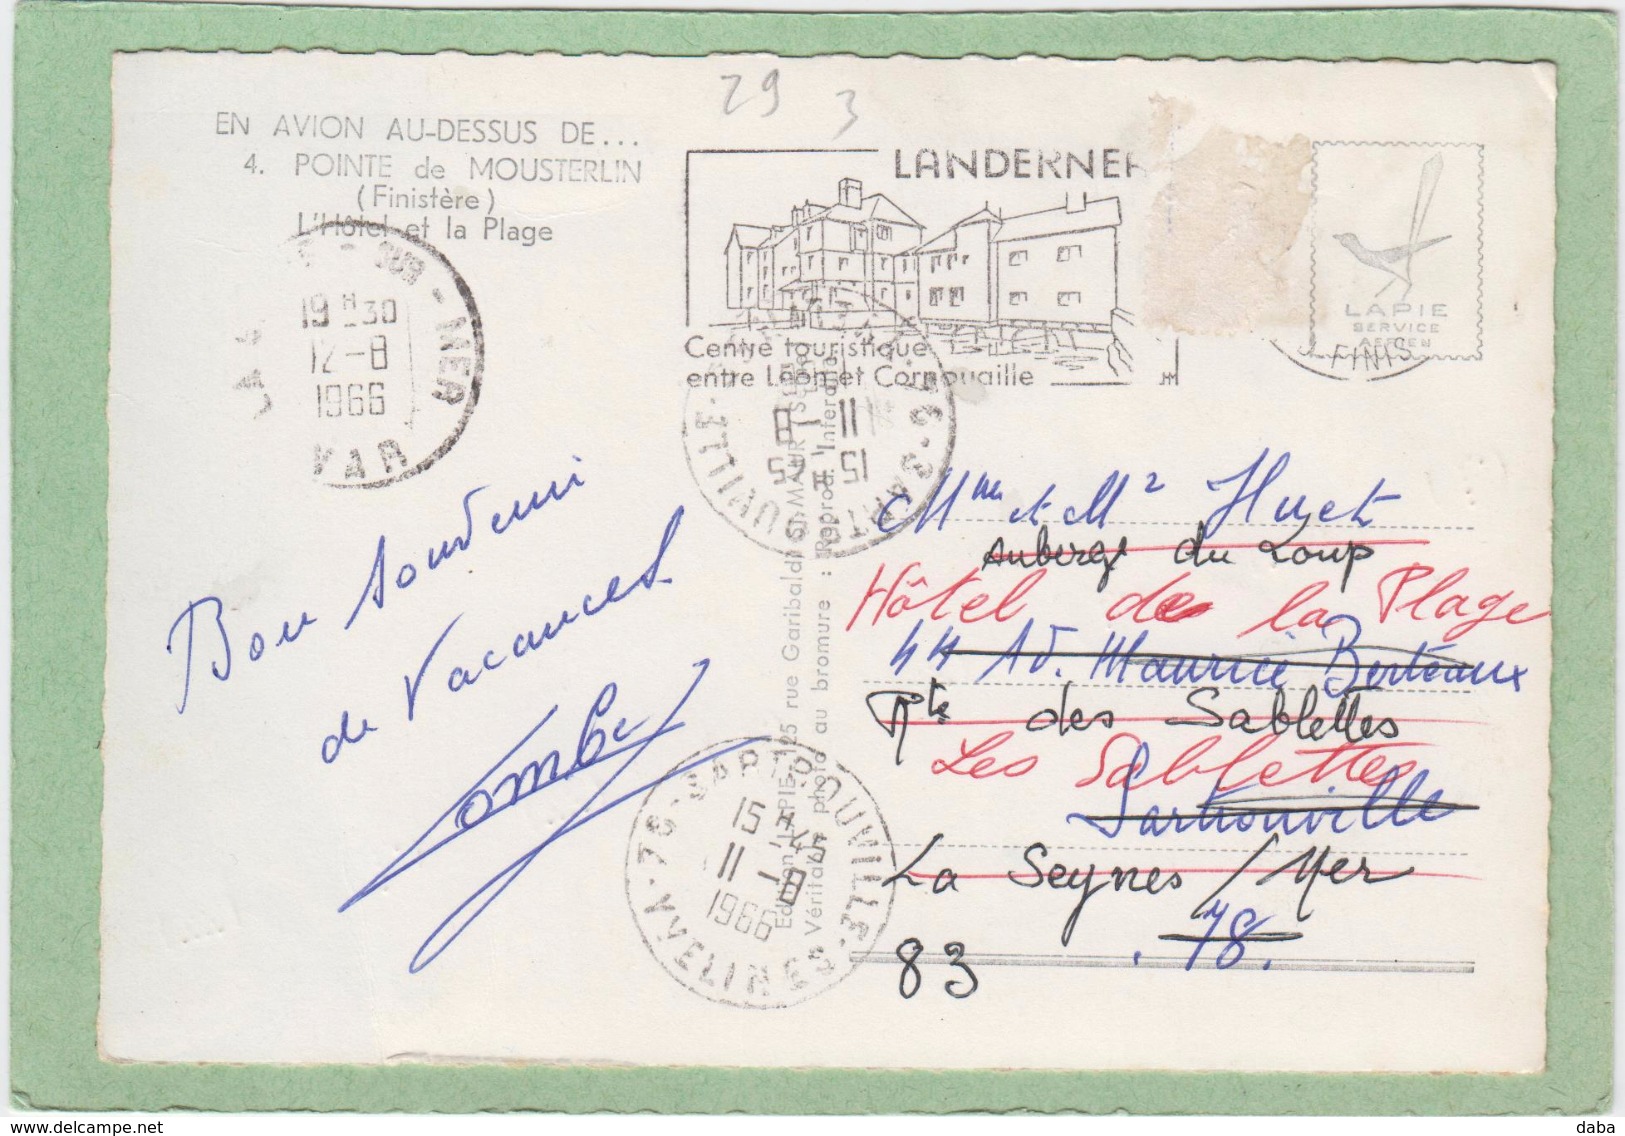 29
3
EN AVION AU-DESSUS DE...
4. POINTE de MOUSTERLIN
(Finistère)
L'Hôtel et la Plage
SUR - MER
19 H 30
12-8
1966
VAR
LANDERNE
Centre touristique
entre Léon et Cornouaille
FINIS
LAPIE
SERVICE
AERIEN
Bon souvenir
de Vacances
Mme et Mr Huet
Auberge du Loup
Hôtel de la Plage
44 Av. Maurice Berteaux
Rte des Sablettes
Les Sablettes
Sartrouville
La Seynes/Mer
78.
83
78-SARTROUVILLE-YVELINES
15 H
11-8
1966
Edition LAPIE 125 rue Garibaldi St MAUR
Véritable photo au bromure : Reprod. Interdite
delcampe.net
daba